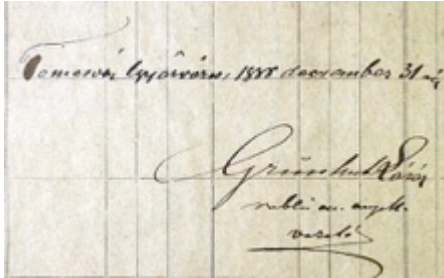 Temesvár Gyárváros, 1888 december 31 én
Grünhut Lázár
rabbi
vezető